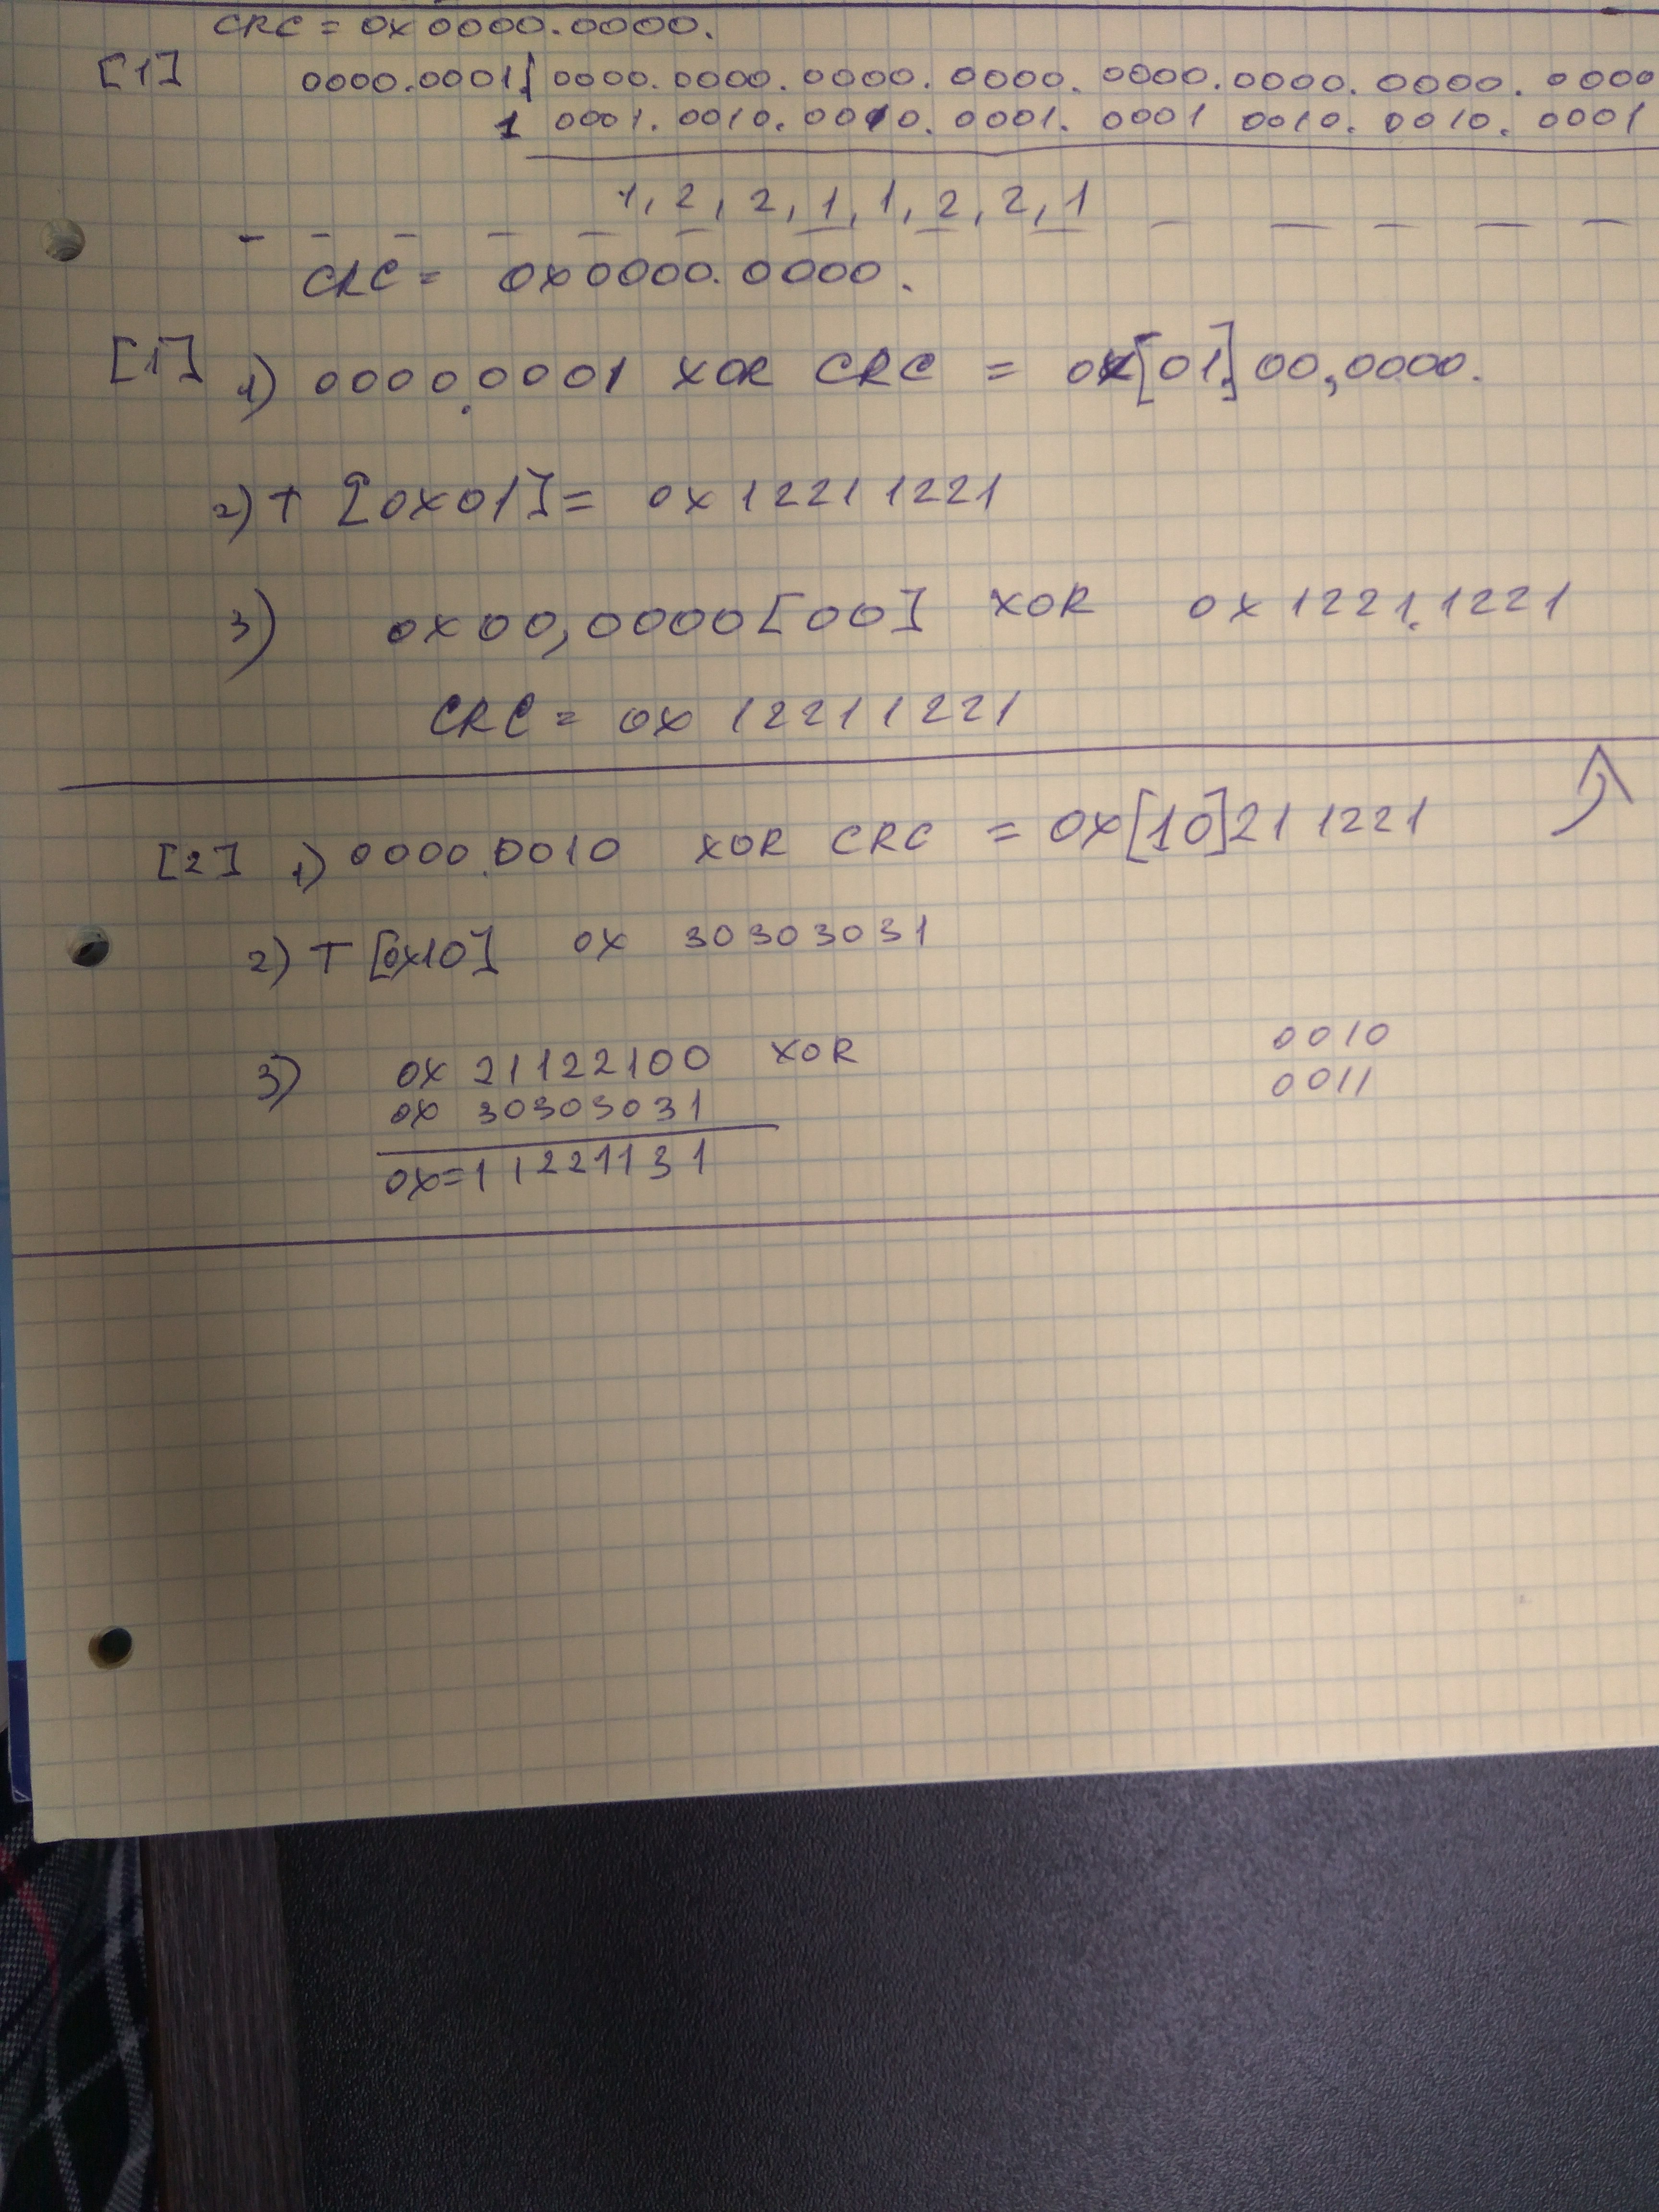 CRC = 0x0000.0000.
[1] 0000.0001.| 0000.0000.0000.0000.0000.0000.0000.0000
1 0001.0010.0010.0001.0001 0010.0010.0001
1, 2, 2, 1, 1, 2, 2, 1
CRC = 0x0000.0000.
[1] 1) 0000.0001 XOR CRC = 0x[01]00,0000.
2) T [0x01] = 0x12211221
3) 0x00,0000[00] XOR 0x1221.1221
CRC = 0x 12211221
[2] 1) 0000.0010 XOR CRC = 0x[10]21 1221
2) T [0x10] 0x 30303031
3) 0x 21122100 XOR
0x 30303031
0x=11221131
0010
0011